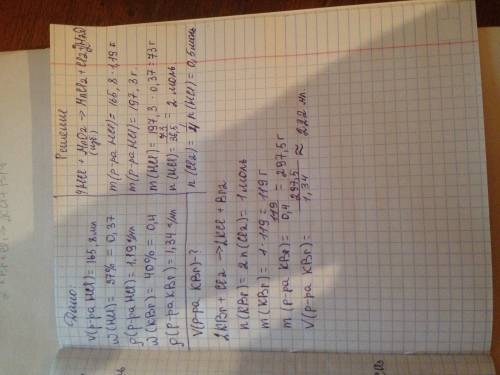 Дано:
V(р-ра HCl) = 165,8 мл
ω(HCl) = 37% = 0,37
ρ(р-ра HCl) = 1,19 г/мл
ω(KBr) = 40% = 0,4
ρ(р-ра KBr) = 1,34 г/мл
V(р-ра KBr) - ?
Решение
4HCl + MnO2 → MnCl2 + Cl2 + 2H2O
(изб)
m(р-ра HCl) = 165,8 · 1,19 г
m(р-ра HCl) = 197,3 г
m(HCl) = 197,3 · 0,37 = 73 г
n(HCl) = 73/36,5 = 2 моль
n(Cl2) = 1/4 n(HCl) = 0,5 моль
2KBr + Cl2 → 2KCl + Br2
n(KBr) = 2n(Cl2) = 1 моль
m(KBr) = 1 · 119 = 119 г
m(р-ра KBr) = 119/0,4 = 297,5 г
V(р-ра KBr) = 297,5/1,34 ≈ 222 мл